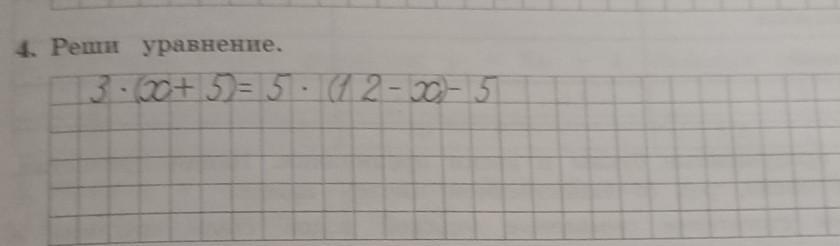 4. Реши уравнение.
3 · (x + 5) = 5 · (12 - x) - 5